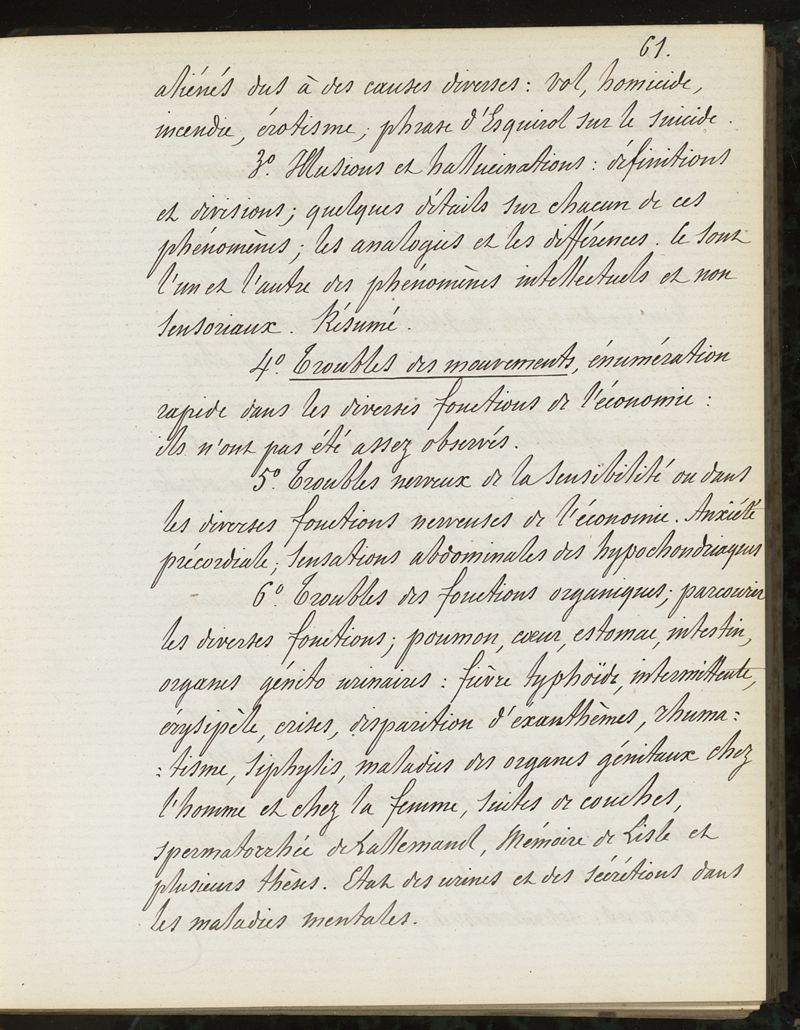 61.
aliénés dus à des causes diverses : vol, homicide,
incendie, érotisme ; phrase d'Esquirol sur le suicide.
3º. Illusions et hallucinations : définitions
et divisions ; quelques détails sur chacun de ces
phénomènes ; les analogies et les différences. Ce sont
l'un et l'autre des phénomènes intellectuels et non
sensoriaux. Résumé.
4º. Troubles des mouvements, énumération
rapide dans les diverses fonctions de l'économie :
ils n'ont pas été assez observés.
5º. Troubles nerveux de la sensibilité ou dans
les diverses fonctions nerveuses de l'économie. Anxiété
précordiale, sensations abdominales des hypochondriaques
6º. Troubles des fonctions organiques ; parcourir
les diverses fonctions ; poumon, cœur, estomac, intestin,
organes génito urinaires : fièvre typhoïde, intermittente,
érysipèle, crises, disparition d'exanthèmes, rhuma:
:tisme, siphylis, maladies des organes génitaux chez
l'homme et chez la femme, suites de couches,
spermatorrhée de Lallemand, Mémoire de Lisle et
plusieurs thèses. Etat des urines et des sécrétions dans
les maladies mentales.